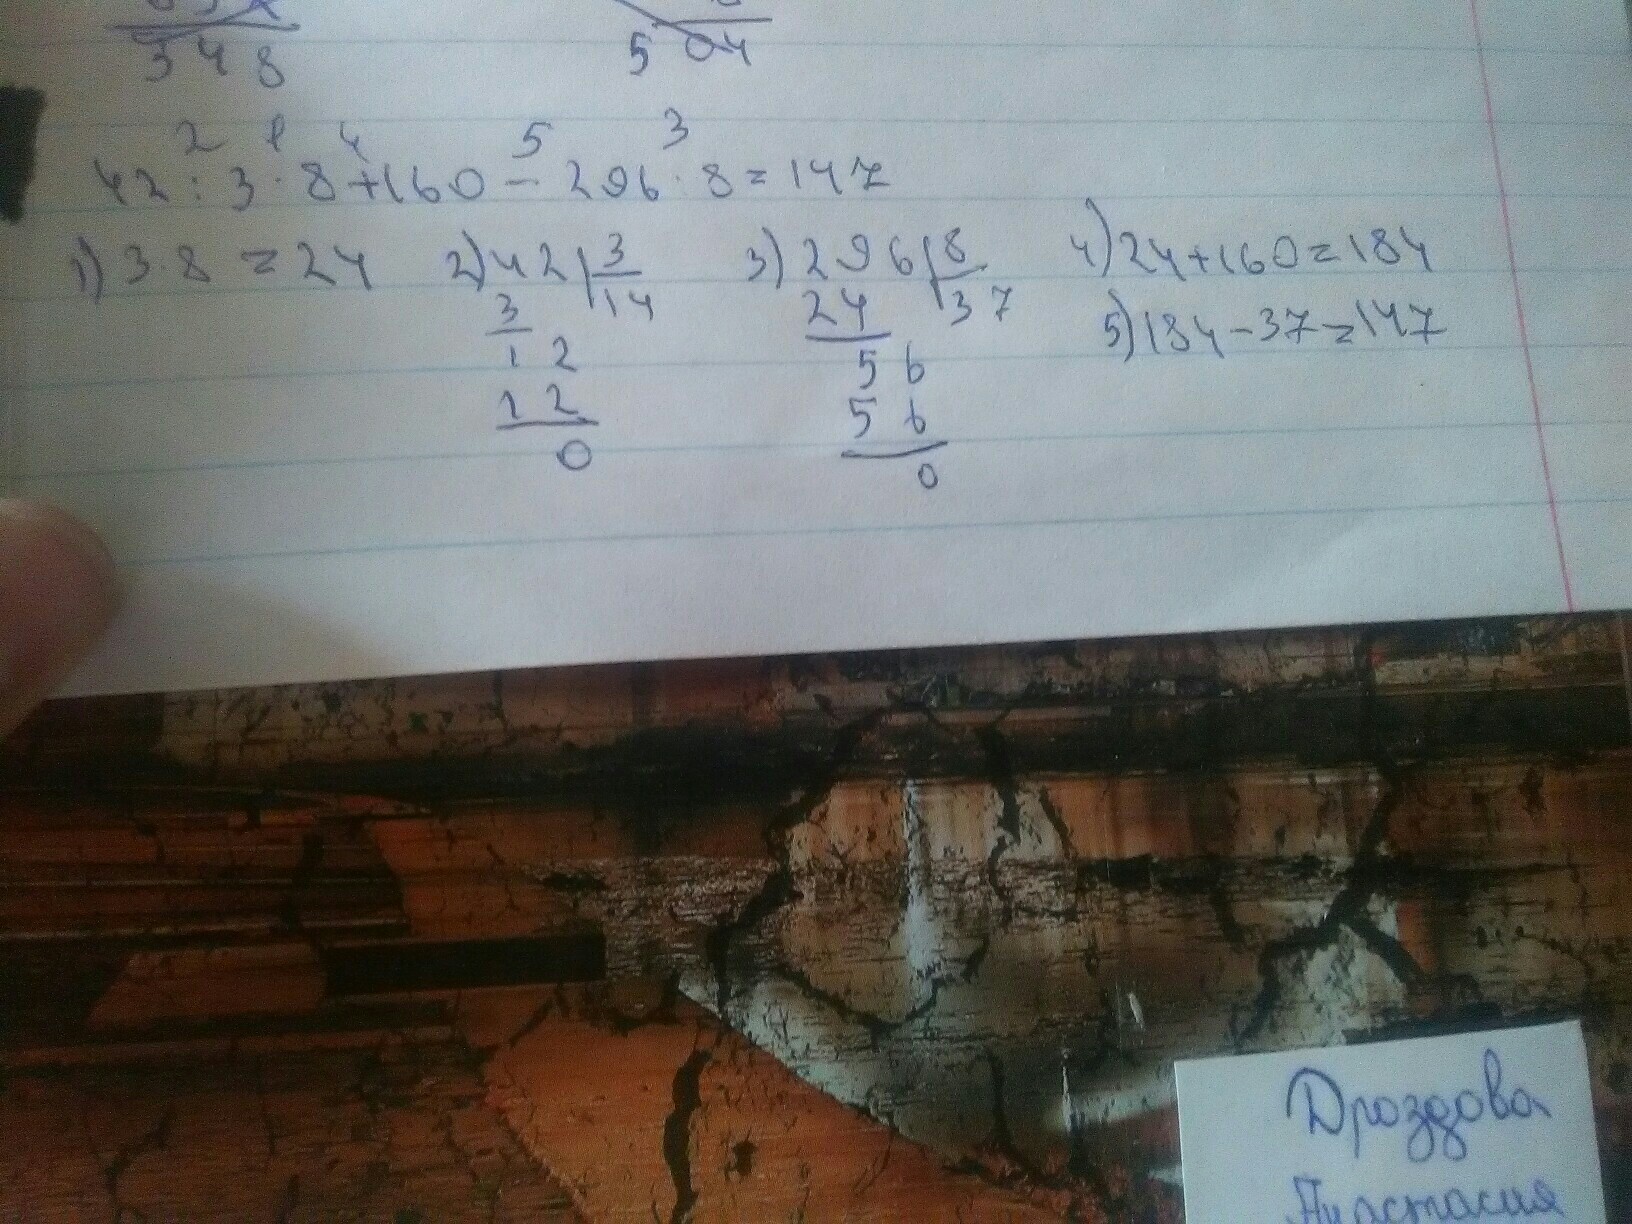 348
504
2 1 4 5 3
42 : 3 · 8 + 160 - 296 · 8 = 147
1) 3 · 8 = 24
2) 42 | 3
14
3
12
12
0
3) 296 | 8
37
24
56
56
0
4) 24 + 160 = 184
5) 184 - 37 = 147
Дроздова
Анастасия